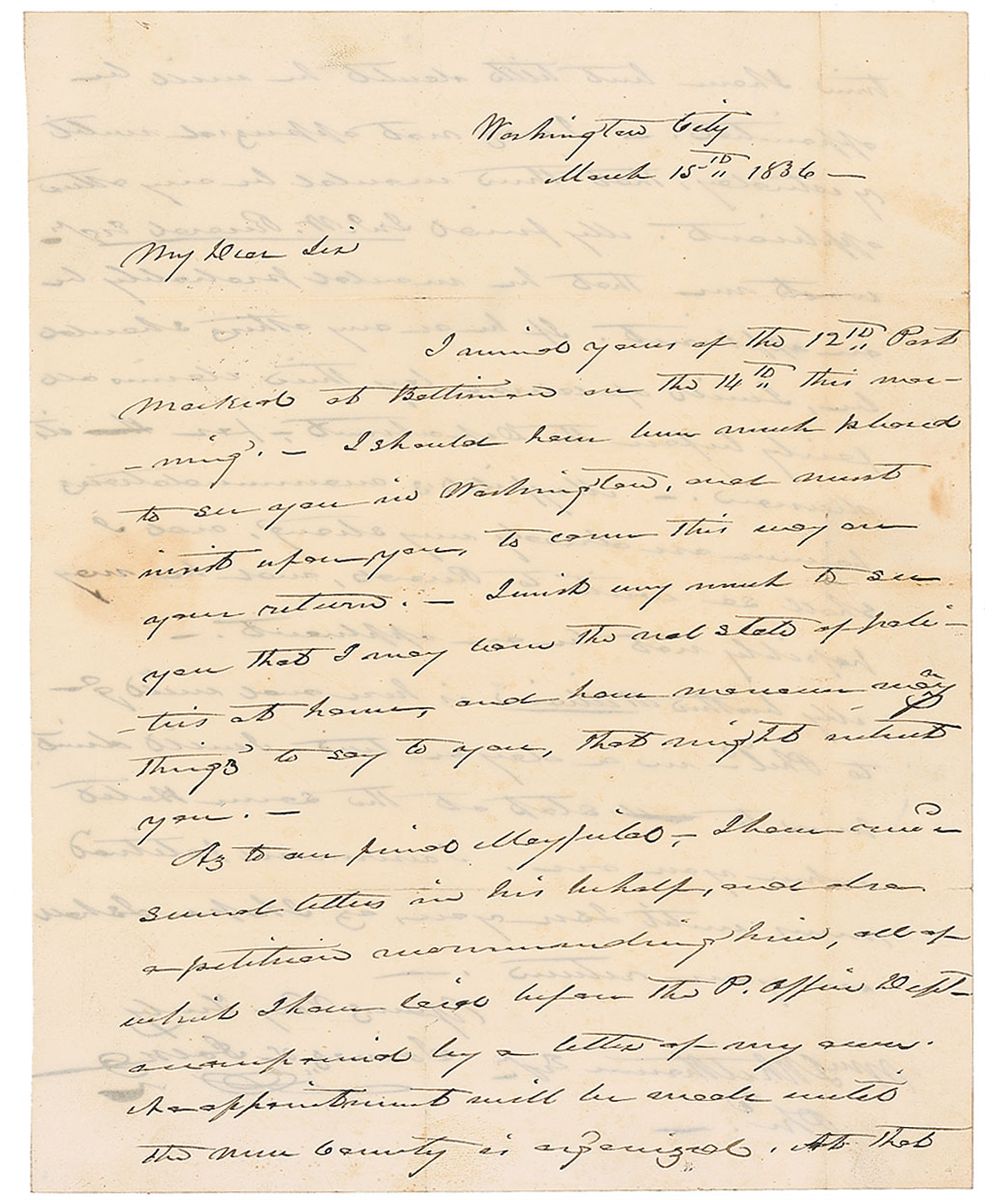 Washington City
March 15th 1836 —
My Dear Sir
I received yours of the 12th Post
marked at Baltimore on the 14th this mor-
-ning. — I should have been much pleased
to see you in Washington, and must
insist upon you, to come this way on
your return. — I wish very much to see
you that I may learn the real state of poli-
-tics at home, and have moreover many
things to say to you, that might interest
you. —
As to our friend Mayfield, — I have received
several letters in his behalf, and also
a petition recommending him, all of
which I have laid before the P. Office Dept-
accompanied by a letter of my own.
No appointment will be made until
the new County is organized. At that